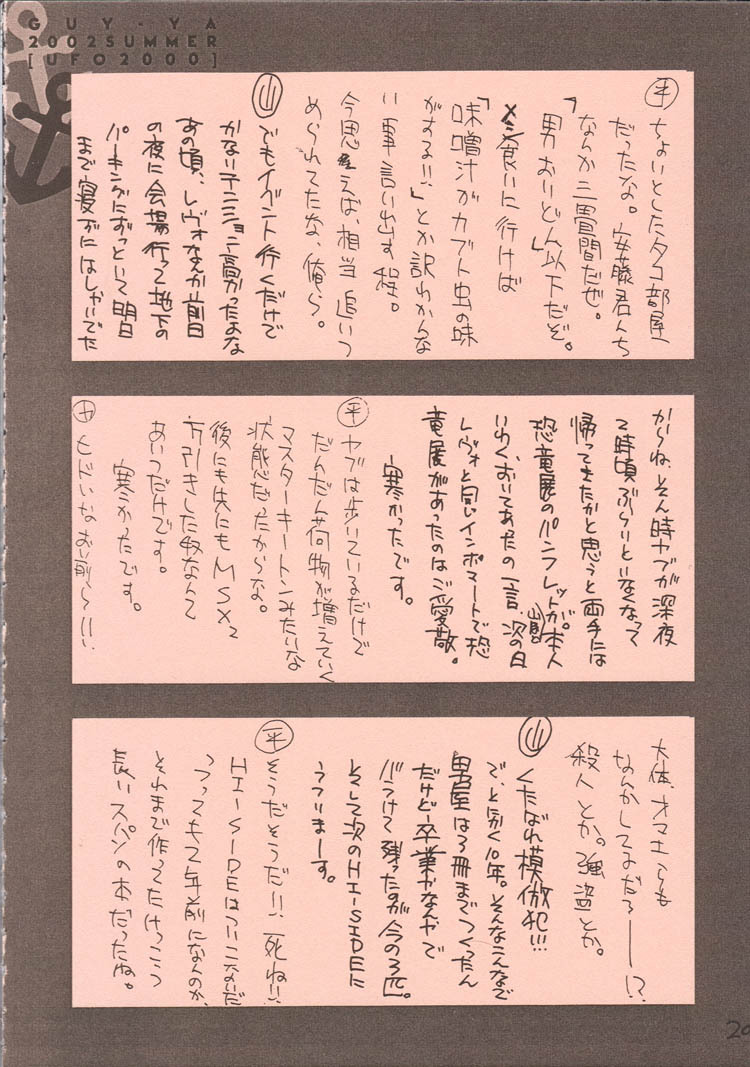 GUY-YA
2002SUMMER
[UFO2000]
平 ちょいとしたタコ部屋
だったな。安藤君んち
なんか三畳間だぜ。
「男おいどん以下だぞ。」
メシ食いに行けば
「味噌汁がカブト虫の味
がする!!」とか訳わかんな
い事言い出す程。
今思えば、相当追いつ
められてたな、俺ら。
山 でもイベント行くだけで
かないテンション高かったよな
あの頃、レヴォなんか前日
の夜に会場行って地下の
パーキングにずっといて明日
まで寝ずにはしゃいでた
から。ね、そん時ヤブが深夜
2時頃ぶらりといなくなって
帰ってきたかと思うと両手には
恐竜展のパンフレットが。本人
いわく、おいてあたの一言。次の日
レヴォと同じインポマートで恐
竜展があったのはご愛敬。
寒かったです。
平 ヤブは歩いているだけで
だんだん荷物が増えていく
マスターキートンみたいな
状態だったからな。
後にも先にもMSX2
万引きした奴なんて
あいつだけです。
寒かったです。
ヤ ヒドいなお前ら!!
大体、オマエらも
なんかしてるだろーー!?
殺人とか。強盗とか。
山 くたばれ模倣犯!!!
で、とにかく10年。そんなこんなで
男屋は3冊までつくったん
だけど卒業やなんやで
バラけて残ったのが今の3匹。
そして次のHI-SIDEに
うつりまーす。
平 そうだそうだ!!死ね!!
HI-SIDEはついこないだ
つってもて2年前になんのか、
それまで作ってたけっこう
長いスパンの本だったね。
29